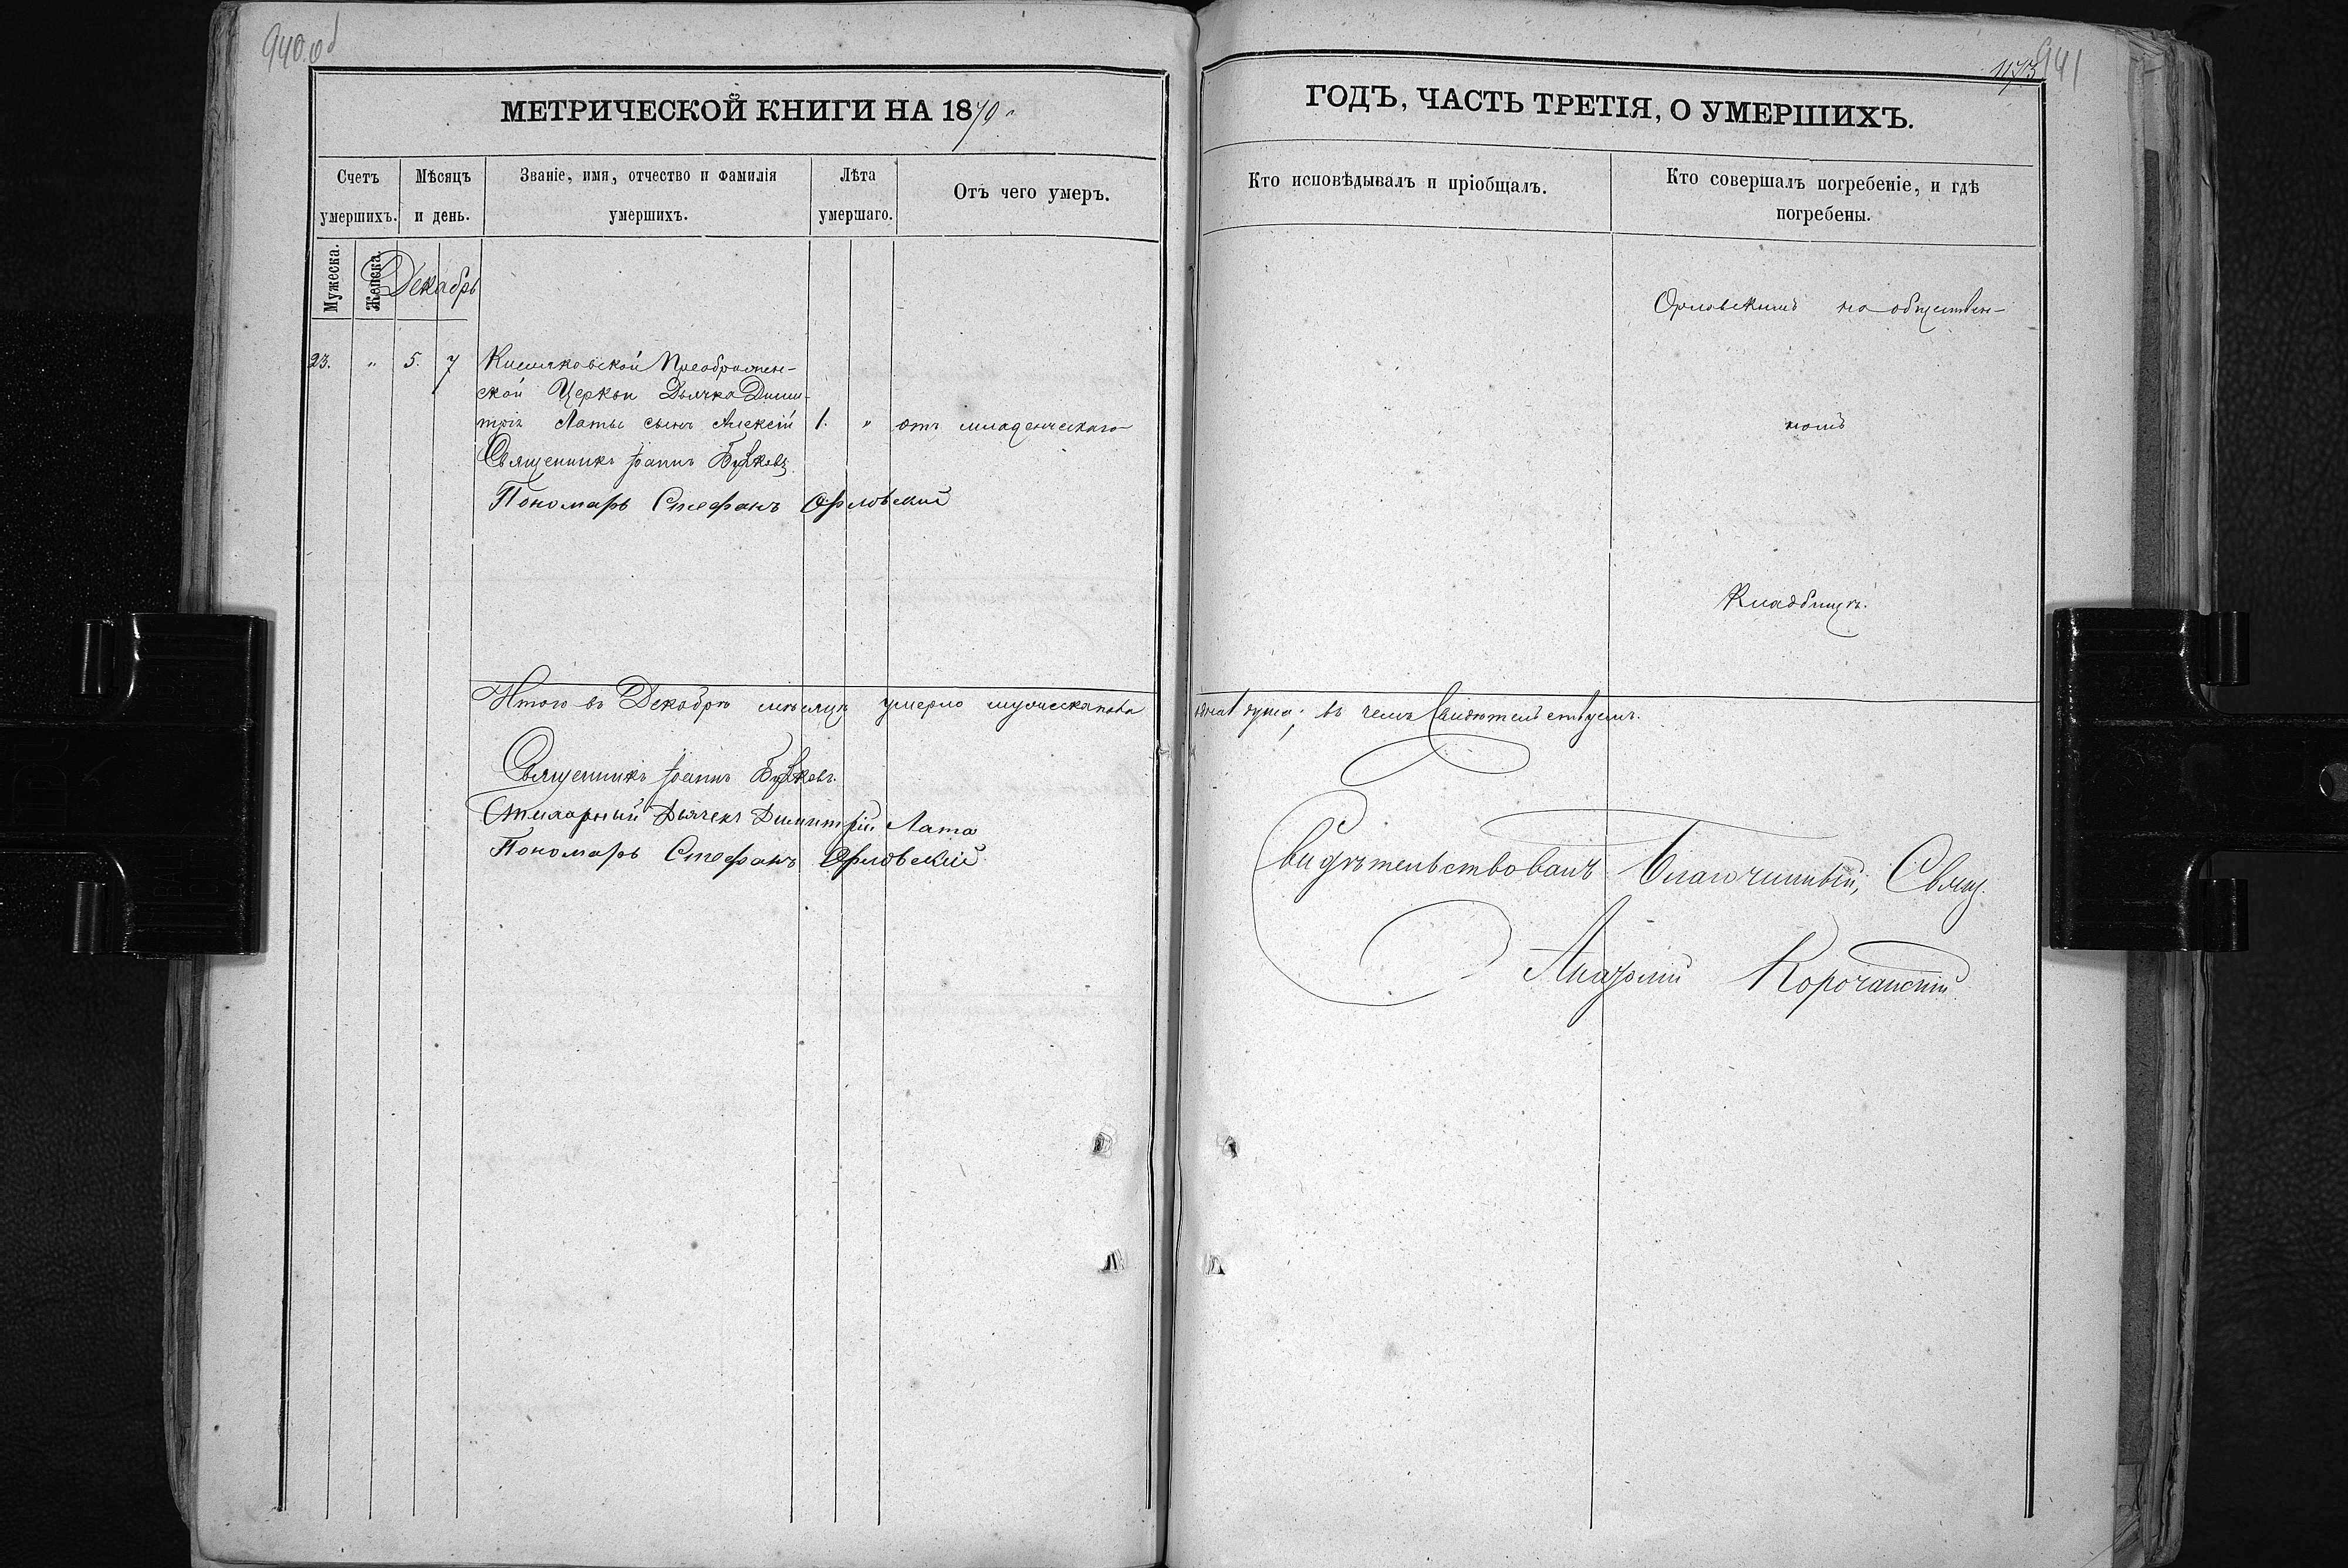 940 об
МЕТРИЧЕСКОЙ КНИГИ НА 1870
Счетъ умершихъ.
Мѣсяцъ и день.
Званіе, имя, отчество и фамилія умершихъ.
Лѣта умершаго.
Отъ чего умеръ.
Мужеска.
Женска.
Декабрь
23. " 5. 7 Кисляковской Преображен-
ской Церкви Дьячка Дими-
трія Латы сынъ Алексій 1. " отъ младенческаго
Священникъ Іоаннъ
Пономарь Стефанъ Орловскій
Итого въ Декабрѣ мѣсяцѣ умерло мужеска пола
Священникъ Іоаннъ
Стихарный Дьячекъ Димитрій Лата
Пономарь Стефанъ Орловскій
1173 941
ГОДЪ, ЧАСТЬ ТРЕТІЯ, О УМЕРШИХЪ.
Кто исповѣдывалъ и пріобщалъ.
Кто совершалъ погребеніе, и гдѣ погребены.
Орловскимъ на обществен-
номъ
Кладбищѣ.
одна душа; въ чемъ Свидѣтельствуемъ.
Свидѣтельствовалъ Благочинный, Свящ.
Анатолій Корочанскій.